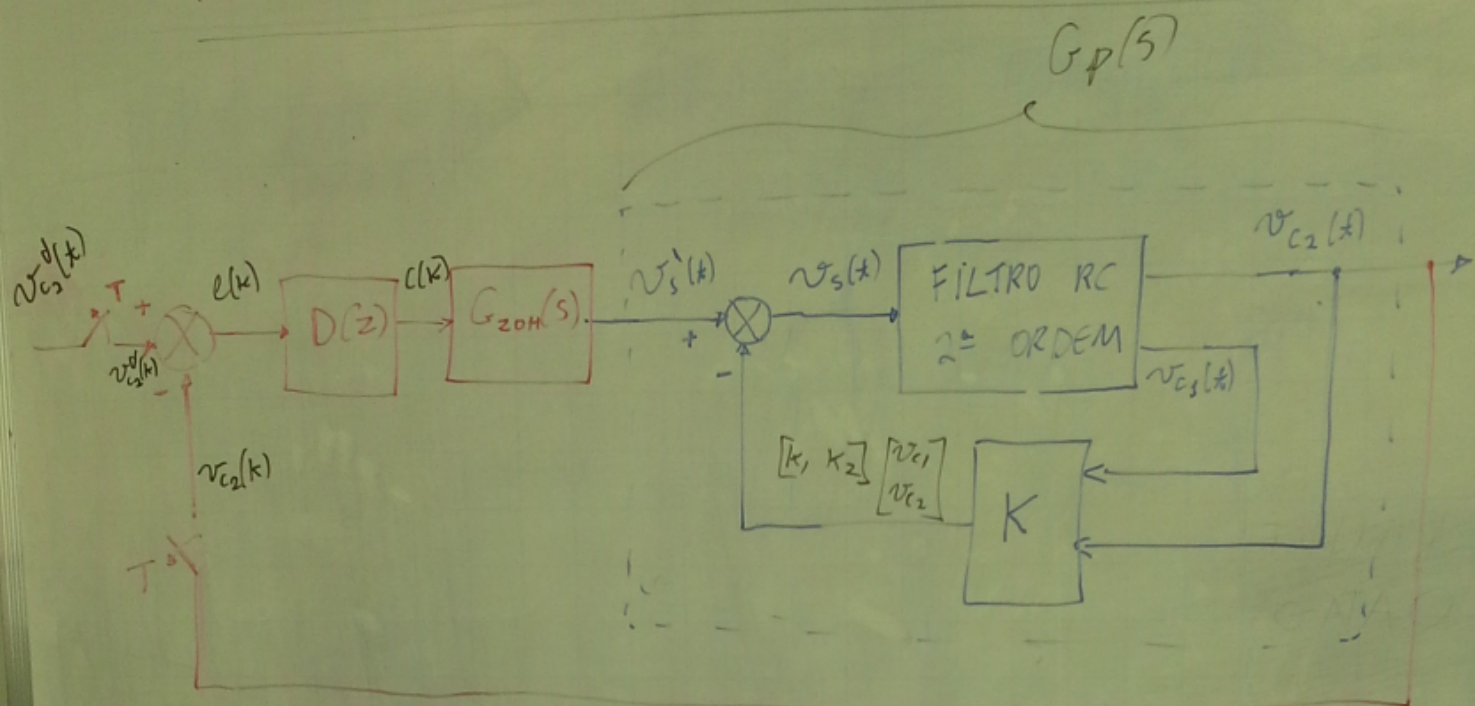 Gp(s)
v_c2^d(t)
T
+
v_c2^d(k)
-
e(k)
D(z)
c(k)
G_ZOH(s)
v_s'(t)
+
-
v_s(t)
FILTRO RC
2ª ORDEM
v_c2(t)
v_c1(t)
[k1 k2] [v_c1
v_c2]
K
v_c2(k)
T